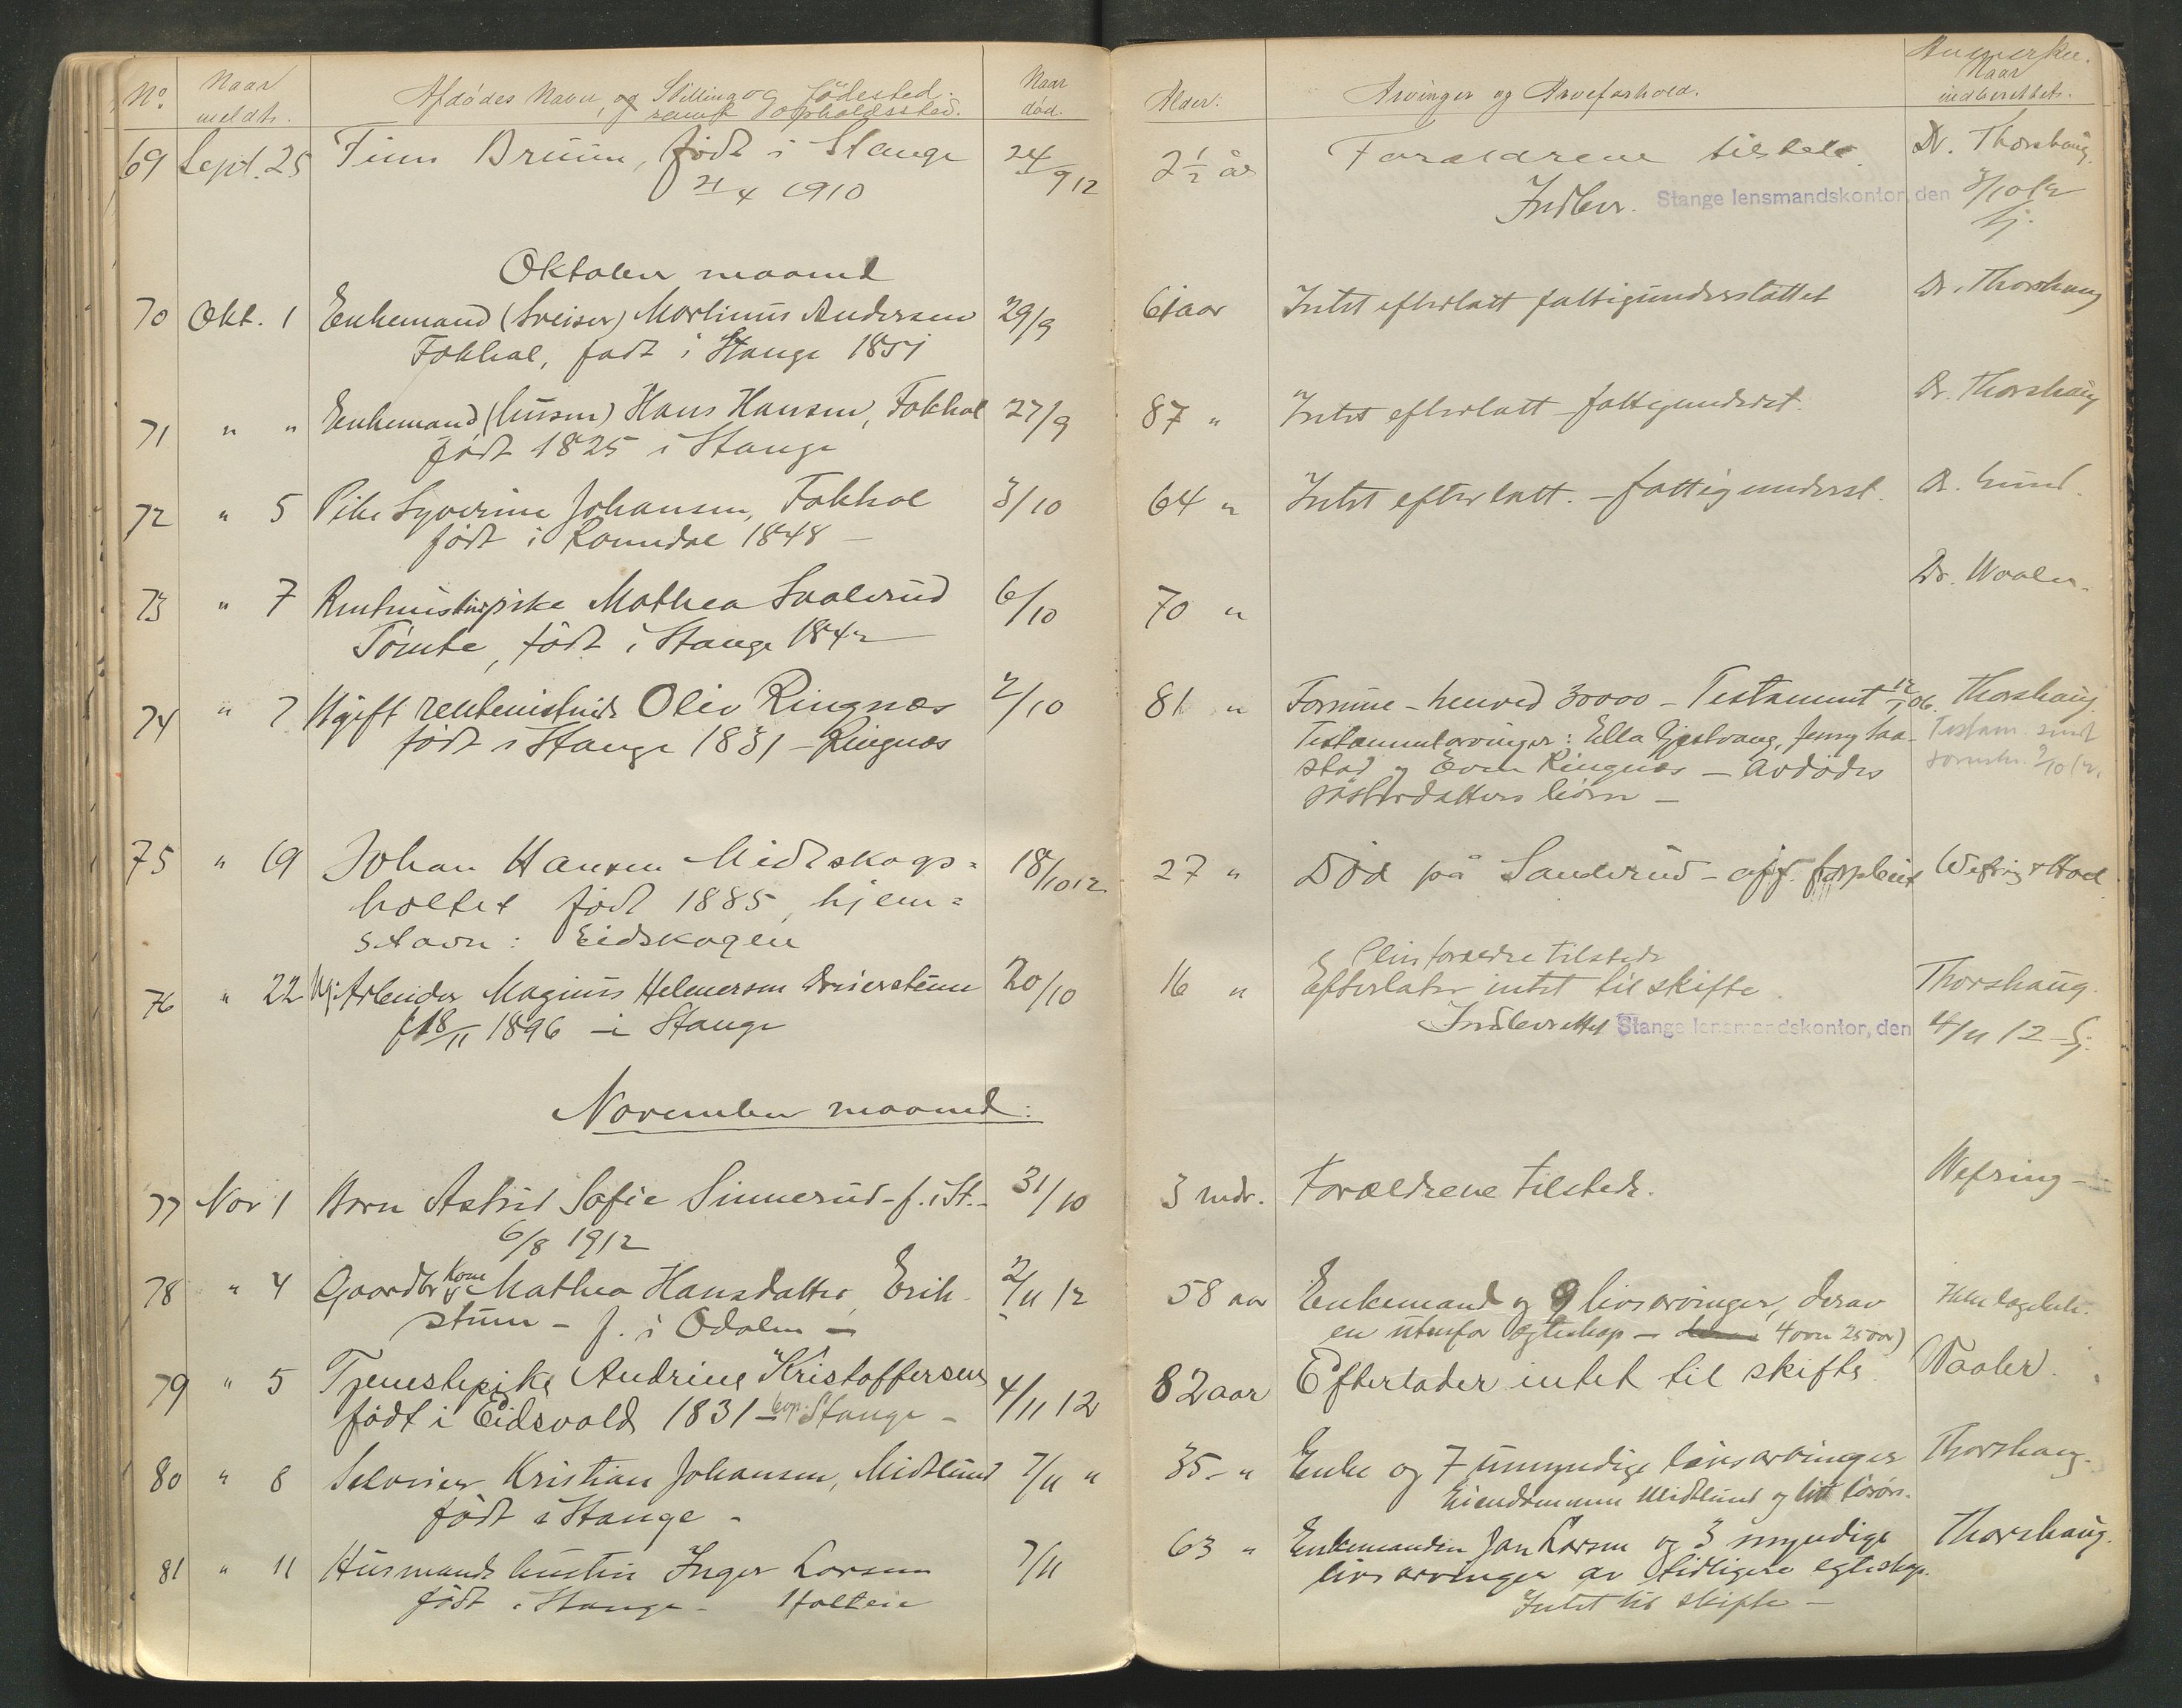 No. Naar meldt. Afdødes Navn, og Stilling og fødested. Naar død. Alder. Arvinger og Arveforhold. Anmerkn.
samt opholdssted. Naar indberettet.
69 Sept. 25 Finn Bruun, født i Stange 24/9 12 2 1/2 år Forældrene tilstede. Dr. Thorshaug.
21/4 1910 Indber. Stange lensmandskontor, den 3/10 12
Oktober maaned
70 Okt. 1 Enkemand (Sveiser) Martinus Andersen 29/9 61 aar Intet efterlatt fattigunderstøttet Dr. Thorshaug
Fokhol, født i Stange 1851
71 " " Enkemand (husm) Hans Hansen, Fokhol 27/9 87 " Intet efterlatt - fattigunderst. Dr. Thorshaug
født 1825 i Stange
72 " 5 Pike Syverine Johansen, Fokhol 3/10 64 " Intet efterlatt. - fattigunderst. Dr. Lund.
født i Romedal 1848 —
73 " 7 Rentenistinpike Mathea Saalerud 6/10 70 " Dr. Waaler.
Tomte, født i Stange 1842
74 " 7 Ugift rentenistinde Oliv Ringnæs 2/10 81 " Formue - henved 30000 - Testament 12/1 06. Thorshaug
født i Stange 1831 - Ringnæs Testamentarvinger: Ella Gjestvang, Jenny Saa- Testam. sendt
stad og Even Ringnæs — Avdødes sorenskr. 9/10 12.
søsterdatters børn —
75 " 19 Johan Hansen Midtskogs= 18/10 12 27 " Død på Sanderud - off. forpleiet Wefring & Hoel
holtet født 1885, hjem=
stavn: Eidskogen
76 " 22 Ug: Arbeider Magnus Helmersen 20/10 16 " Efterlater intet til skifte. Thorshaug.
Pleieforældre tilstede
f. 18/11 1896 - i Stange Indberettet Stange lensmandskontor, den 4/11 12 -
November maaned:
77 Nov 1 Barn Astrid Sofie Sinnerud - f. i St. - 31/10 3 mdr. Forældrene tilstede. Wefring -
6/8 1912
78 " 4 Gaardbr kone Mathea Hansdatter, Erik- 2/11 12 58 aar Enkemand og 9 livsarvinger, derav Ikke lægebeh.
stuen - f. i Odalen — en utenfor egteskap — 4 over 25 aar)
79 " 5 Tjenestepike Andrine Kristoffersen 4/11 12 82 aar Efterlader intet til skifte Waaler.
født i Eidsvold 1831 - bop. Stange -
80 " 8 Seleier Kristian Johansen, Midtlund 7/11 " 35 - " Enke og 7 umyndige livsarvinger Thorshaug.
født i Stange - Eiendommen Midtlund og litt løsøre.
81 " 11 Husmandshustru Inger Larsen 7/11 63 " Enkemanden Jan Larsen og 3 myndige Thorshaug.
født i Stange - livsarvinger av tidligere egteskap.
Intet til skifte —